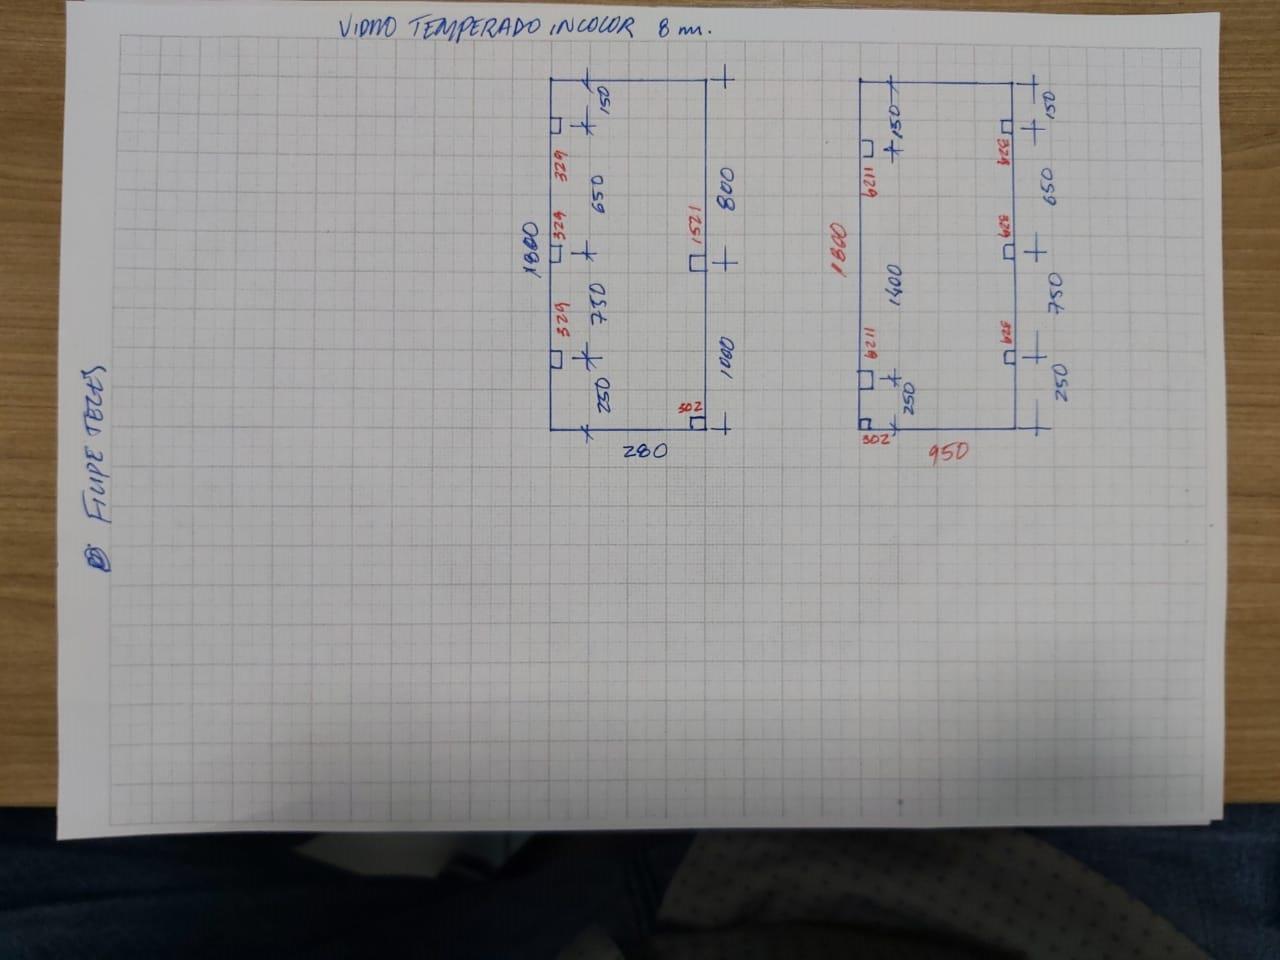 VIDRO TEMPERADO INCOLOR 8 mm.
150
329
650
329
1800
750
329
250
280
800
1521
1000
302
150
6211
1800
1400
6211
250
302
950
150
329
650
329
750
329
250
FILIPE TELES